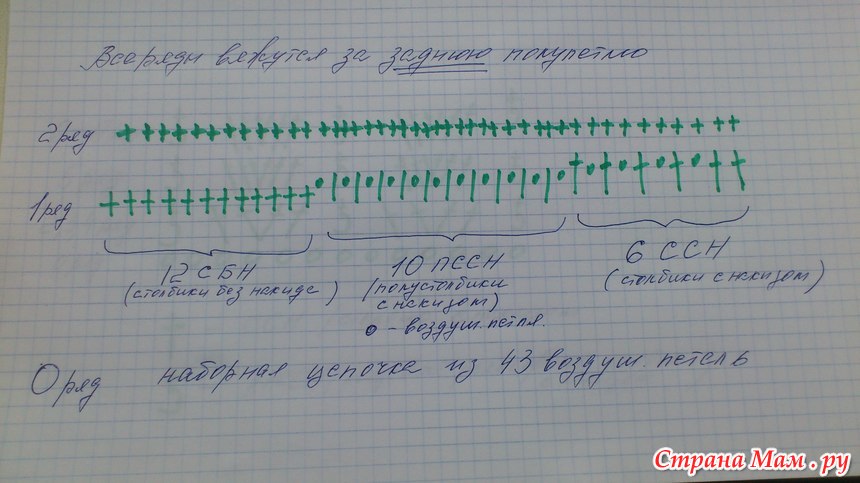 Все ряды вяжутся за заднюю полупетлю
2 ряд
1 ряд
12 СБН
(столбики без накида)
10 ПССН
(полустолбики
с накидом)
о - воздуш. петля.
6 ССН
(столбики с накидом)
0 ряд наборная цепочка из 43 воздуш. петель
Страна Мам.ру